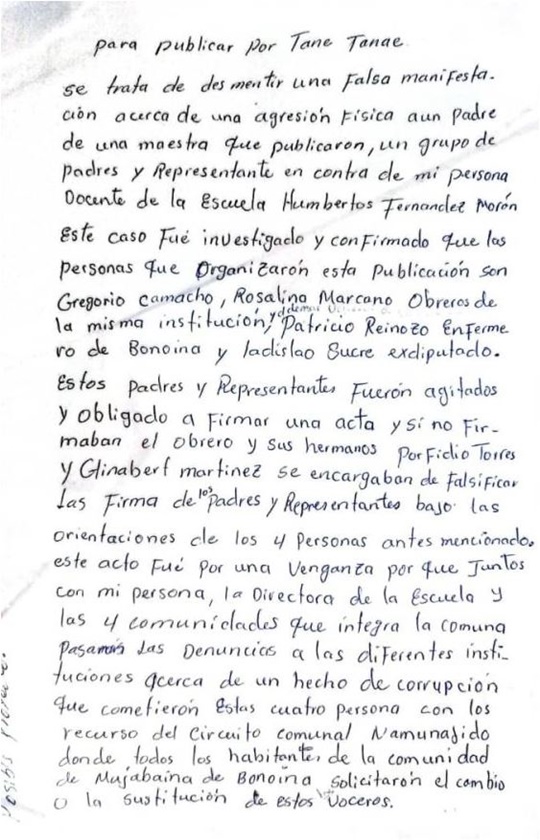 para publicar por Tane Tanae
se trata de desmentir una Falsa manifesta-
ción acerca de una agresión Física aun Padre
de una maestra que publicaron, un grupo de
padres y Representante en contra de mi persona
Docente de la Escuela Humbertos Fernandez Morón
Este caso Fué investigado y confirmado que las
personas que Organizarón esta Publicación son
Gregorio camacho, Rosalino Marcano Obreros de
la misma institución, Patricio Reinozo Enferme
ro de Bonoina y ladislao Sucre exdiputado.
Estos padres y Representantes Fuerón agitados
y obligado a Firmar una acta y si no Fir-
maban el obrero y sus hermanos Porfidio Torres
y Glinabert martinez se encargaban de falsificar
Las Firma de los Padres y Representantes bajo las
orientaciones de los 4 Personas antes mencionado.
este acto Fué por una Venganza por que Juntos
con mi persona, la Directora de la Escuela y
las 4 comunidades que integra la comuna
Pasamos Las Denuncias a las diferentes insti-
tuciones acerca de un hecho de corrupción
que cometierón Estas cuatro persona con los
recurso del Circuito comunal Namunajido
donde todos los habitantes de la comunidad
de Mujabaina de Bonoina solicitarón el cambio
o la sustitución de estos Voceros.